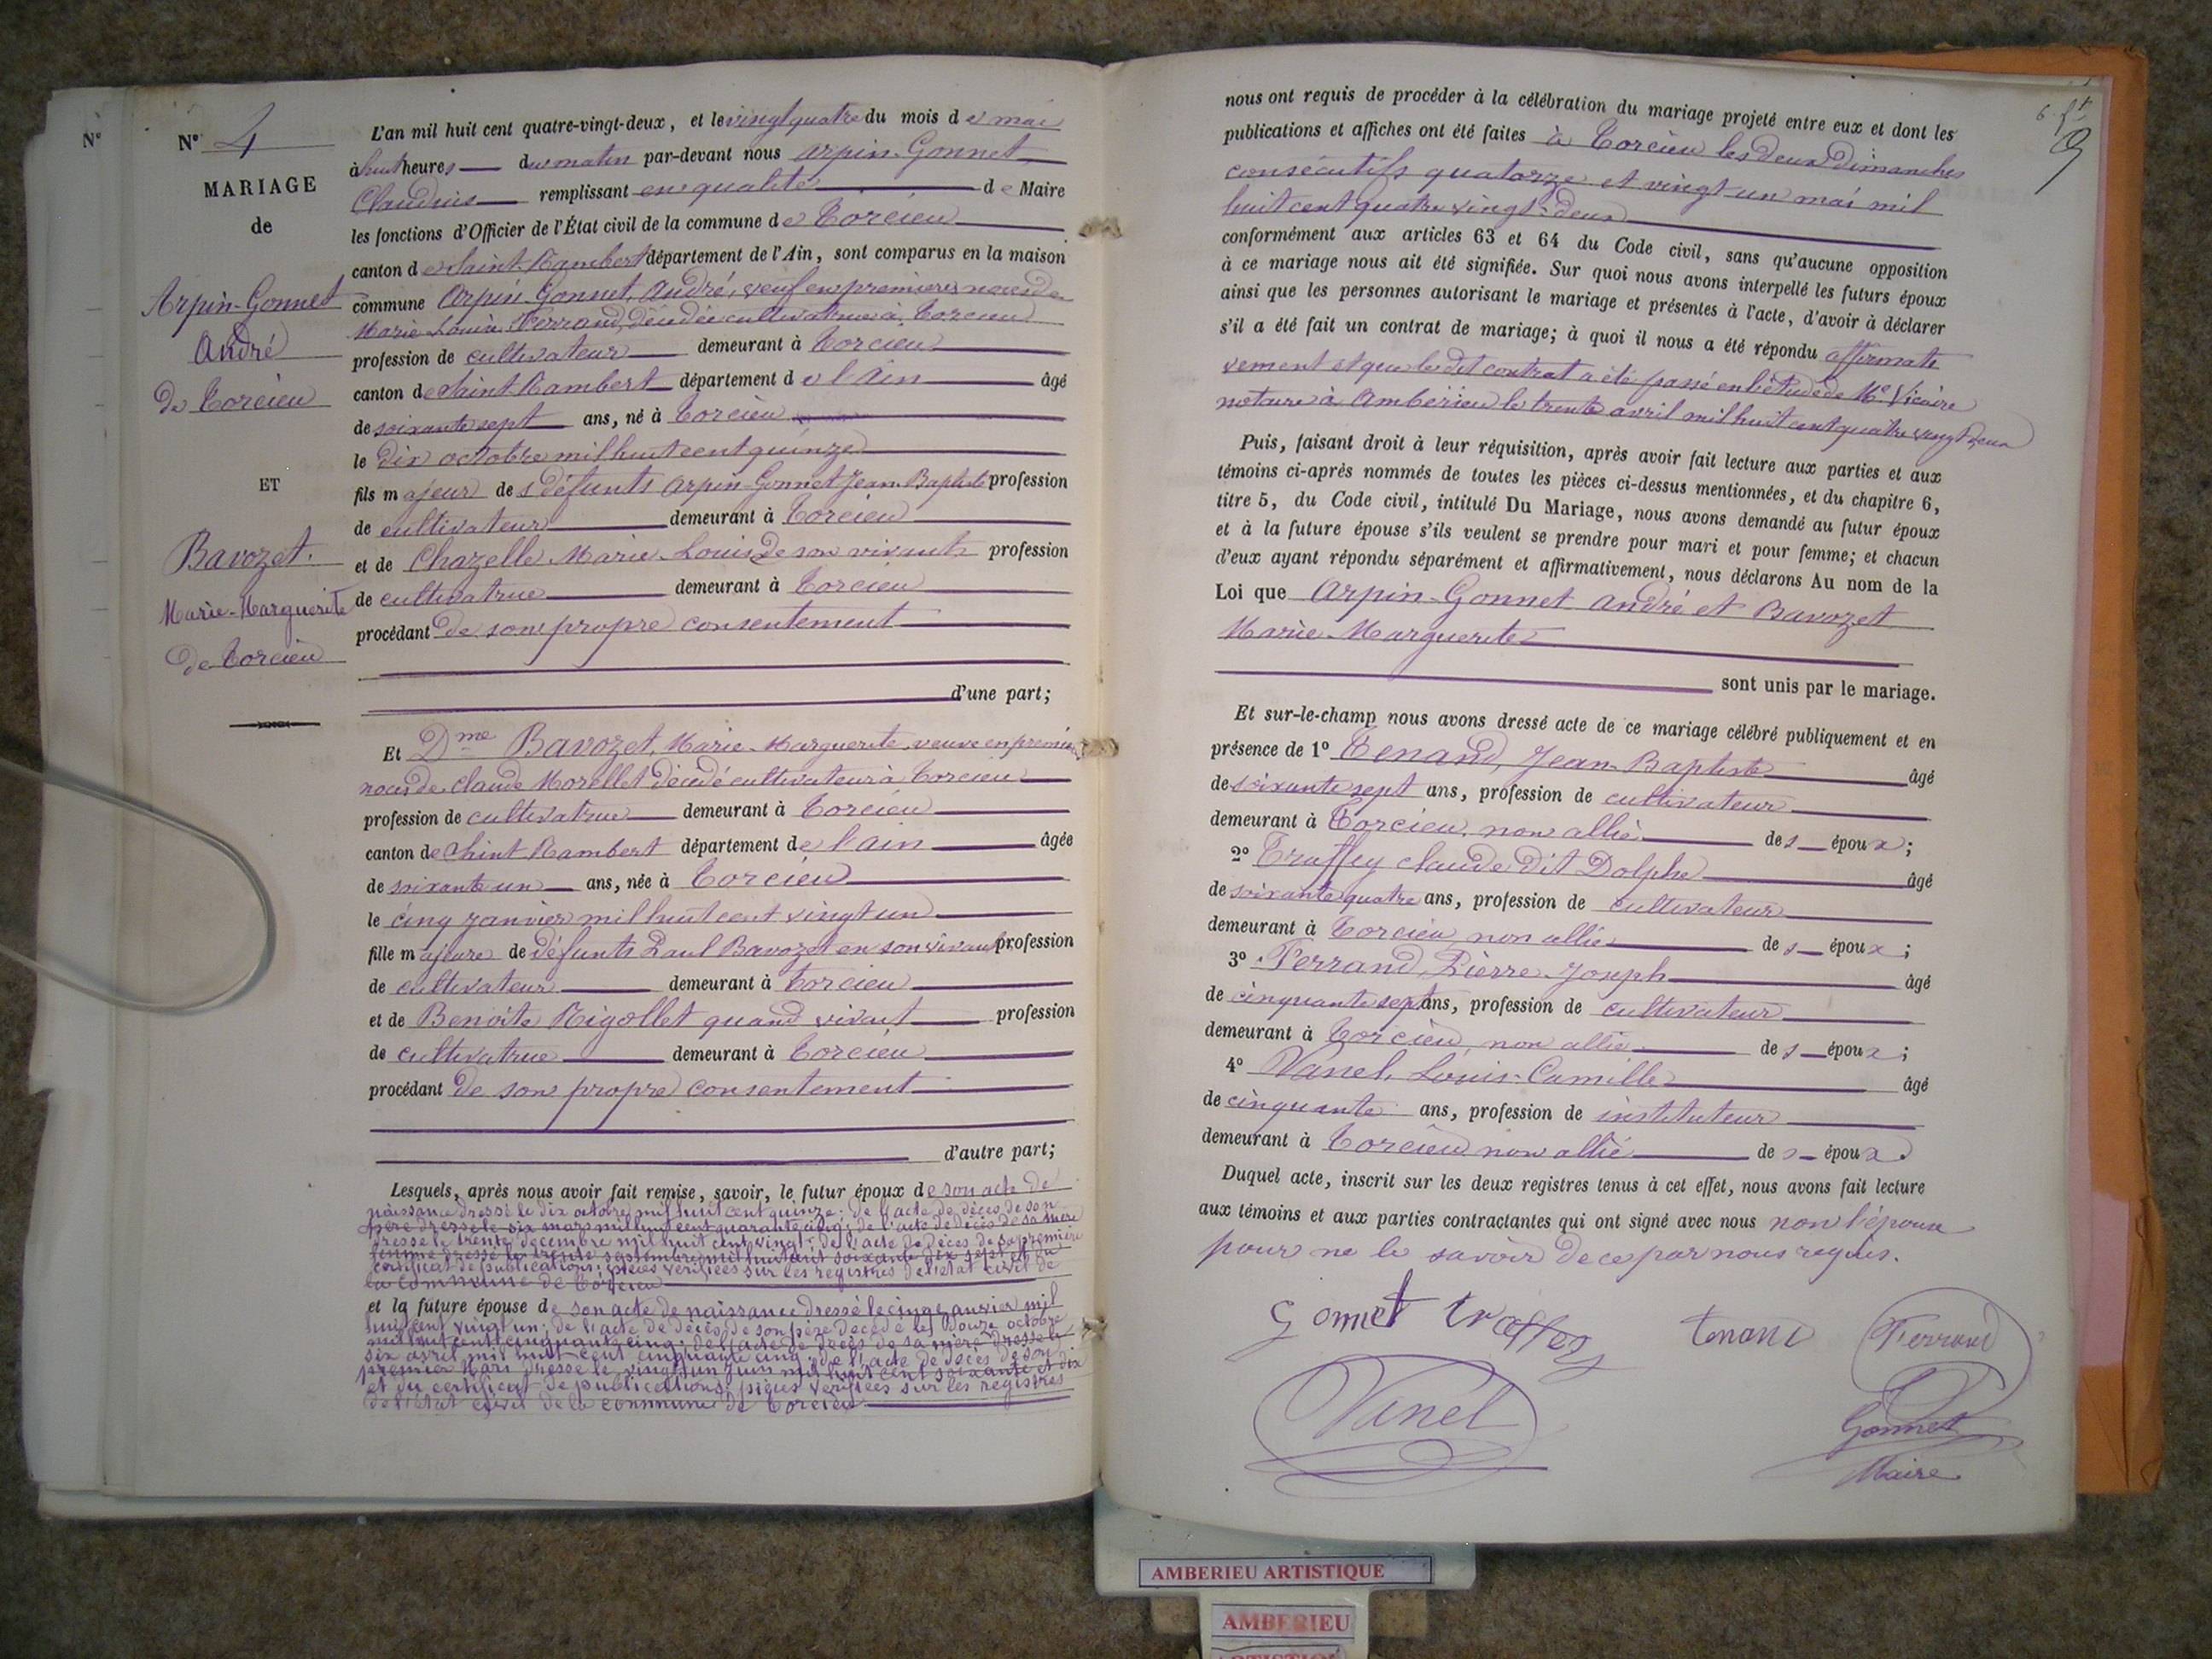 N°
N° 4
MARIAGE
de
Arpin-Gonnet
André
de Torcieu
ET
Bavozet.
Marie-Marguerite
de Torcieu
L'an mil huit cent quatre-vingt-deux, et le vingt quatre du mois de mai
à huit heures du matin par-devant nous Arpin-Gonnet
Claudius remplissant en qualité de Maire
les fonctions d'Officier de l'État civil de la commune de Torcieu
canton de Saint-Rambert département de l'Ain, sont comparus en la maison
commune Arpin-Gonnet, André, veuf en premières noces de
Marie Louise Ferrand, décédée cultivatrice à Torcieu
profession de cultivateur demeurant à Torcieu
canton de Saint-Rambert département de l'Ain âgé
de soixante sept ans, né à Torcieu
le dix octobre mil huit cent quinze
fils majeur des défunts Arpin-Gonnet Jean-Baptiste profession
de cultivateur demeurant à Torcieu
et de Chazelle Marie-Louise de son vivant profession
de cultivatrice demeurant à Torcieu
procédant de son propre consentement
d'une part;
Et Dme Bavozet, Marie-Marguerite, veuve en premières
noces de Claude Morellet décédé cultivateur à Torcieu
profession de cultivatrice demeurant à Torcieu
canton de Saint Rambert département de l'Ain âgée
de soixante un ans, née à Torcieu
le cinq janvier mil huit cent vingt un
fille majeure de défunts Paul Bavozet en son vivant profession
de cultivateur demeurant à Torcieu
et de Benoite Rigollet quand vivait profession
de cultivatrice demeurant à Torcieu
procédant de son propre consentement
d'autre part;
Lesquels, après nous avoir fait remise, savoir, le futur époux de son acte de
naissance dressé le dix octobre mil huit cent quinze; de l'acte de décès de son
père dressé le six mars mil huit cent quarante cinq; de l'acte de décès de sa mère
dressé le trente décembre mil huit cent vingt; de l'acte de décès de sa première
femme dressé le trente septembre mil huit cent soixante dix sept et du
certificat de publications; pièces vérifiées sur les registres de l'état civil de
la commune de Torcieu
et la future épouse de son acte de naissance dressé le cinq janvier mil
huit cent vingt un; de l'acte de décès de son père décédé le douze octobre
mil huit cent cinquante cinq; de l'acte de décès de sa mère dressé le
six avril mil huit cent cinquante cinq; de l'acte de décès de son
premier mari dressé le vingt un juin mil huit cent soixante et dix
et du certificat de publications; pièces vérifiées sur les registres
de l'état civil de la commune de Torcieu
nous ont requis de procéder à la célébration du mariage projeté entre eux et dont les
publications et affiches ont été faites à Torcieu les deux Dimanches
consécutifs quatorze et vingt un mai mil
huit cent quatre vingt-deux
conformément aux articles 63 et 64 du Code civil, sans qu'aucune opposition
à ce mariage nous ait été signifiée. Sur quoi nous avons interpellé les futurs époux
ainsi que les personnes autorisant le mariage et présentes à l'acte, d'avoir à déclarer
s'il a été fait un contrat de mariage; à quoi il nous a été répondu affirmati
vement et que le dit contrat a été passé en l'étude de Me Vicaire
notaire à Ambérieu le trente avril mil huit cent quatre vingt deux
Puis, faisant droit à leur réquisition, après avoir fait lecture aux parties et aux
témoins ci-après nommés de toutes les pièces ci-dessus mentionnées, et du chapitre 6,
titre 5, du Code civil, intitulé Du Mariage, nous avons demandé au futur époux
et à la future épouse s'ils veulent se prendre pour mari et pour femme; et chacun
d'eux ayant répondu séparément et affirmativement, nous déclarons Au nom de la
Loi que Arpin-Gonnet André et Bavozet
Marie-Marguerite
sont unis par le mariage.
Et sur-le-champ nous avons dressé acte de ce mariage célébré publiquement et en
présence de 1° Tenand, Jean-Baptiste âgé
de soixante sept ans, profession de cultivateur
demeurant à Torcieu, non allié des époux;
2° Traffey Claude dit Dolphe âgé
de soixante quatre ans, profession de cultivateur
demeurant à Torcieu, non allié des époux;
3° Ferrand, Pierre-Joseph âgé
de cinquante sept ans, profession de cultivateur
demeurant à Torcieu, non allié des époux;
4° Vanel, Louis-Camille âgé
de cinquante ans, profession de instituteur
demeurant à Torcieu non allié des époux.
Duquel acte, inscrit sur les deux registres tenus à cet effet, nous avons fait lecture
aux témoins et aux parties contractantes qui ont signé avec nous non l'épouse
pour ne le savoir de ce par nous requis.
Gonnet traffey tenand Ferrand
Vanel
Gonnet
Maire
AMBERIEU ARTISTIQUE
AMBERIEU
ARTISTIQUE